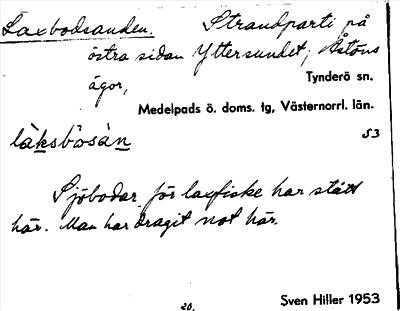 Laxbodsanden. Strandparti på
östra sidan Yttersundet, Åstöns
ägor,
Tynderö sn.
Medelpads ö. doms. tg, Västernorrl. län.
53
làksbosán
Sjöbodar för laxfiske har stått
här. Man har dragit not här.
20.
Sven Hiller 1953